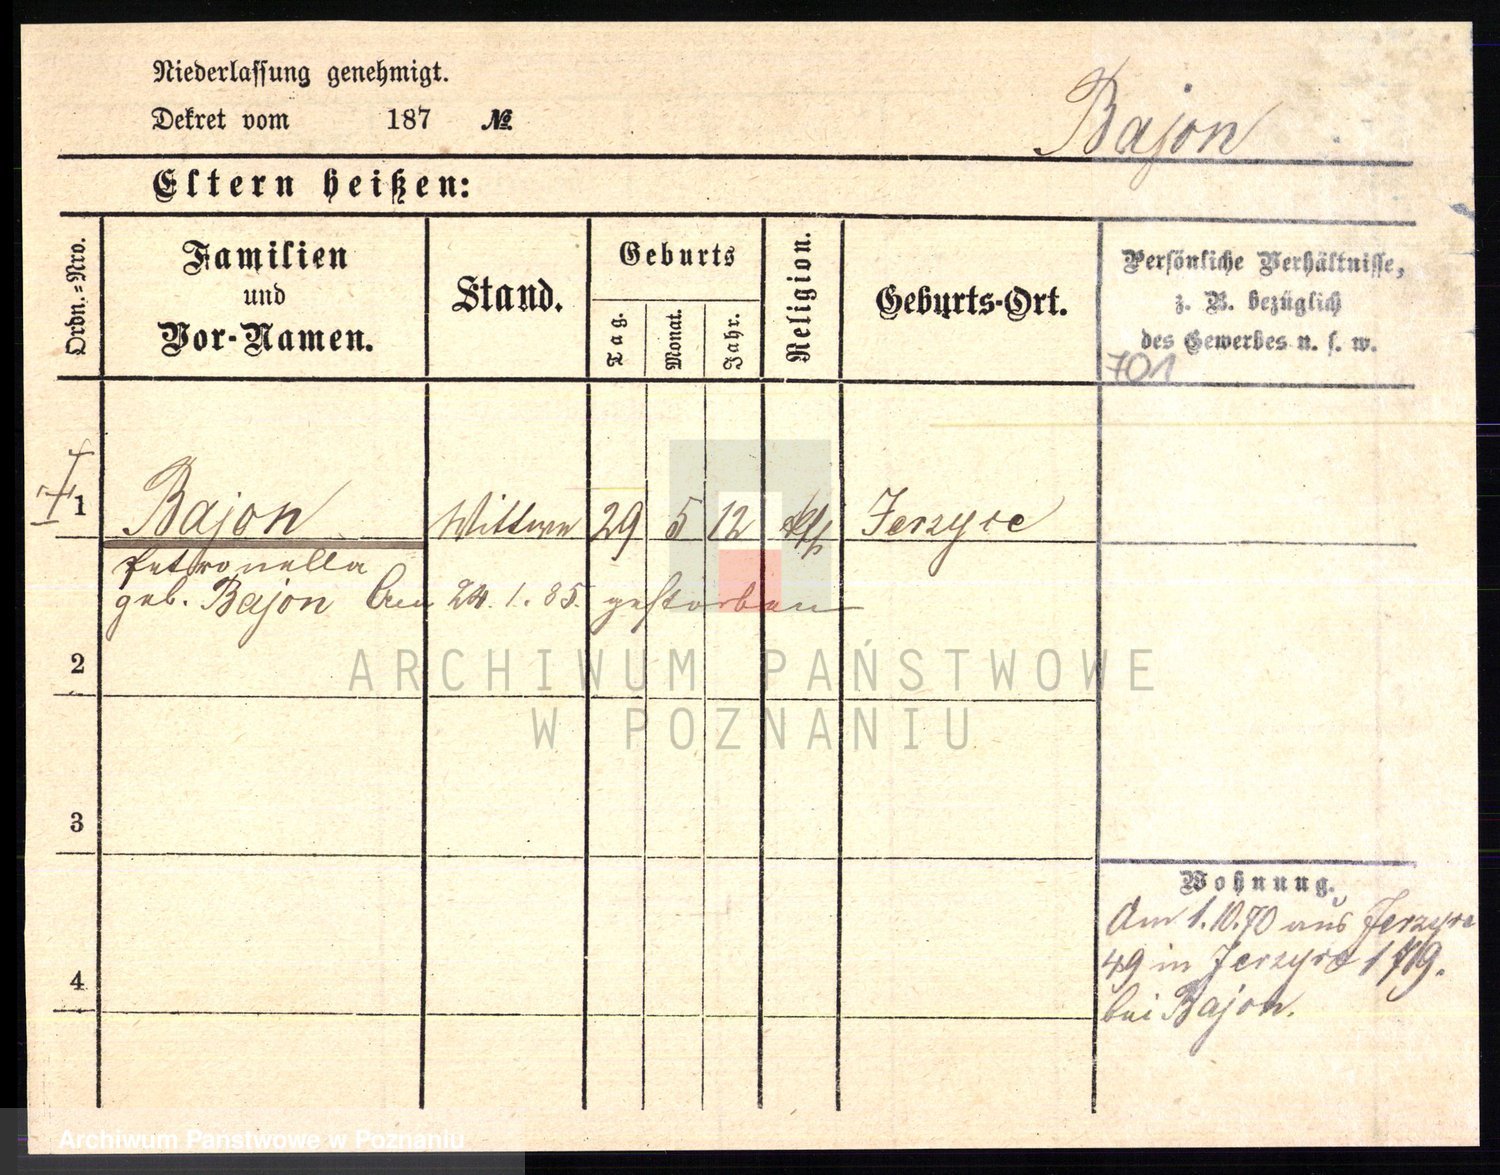 Niederlassung genehmigt.
Dekret vom 187 №
Bajon
Eltern heißen:
Ordn.=Nro.
Familien
und
Vor-Namen.
Stand.
Geburts
Tag.
Monat.
Jahr.
Religion.
Geburts-Ort.
Persönliche Verhältnisse,
z. B. bezüglich
des Gewerbes u. s. w.
701
1 Bajon Wittwe 29 5 12 kth Jerzyce
Petronella
geb. Bajon Am 24. 1. 85. gestorben
2
3
4
Wohnung.
Am 1.10.70 aus Jerzyce
49 in Jerzyce 179.
bei Bajon.
ARCHIWUM PAŃSTWOWE
W POZNANIU
Archiwum Państwowe w Poznaniu